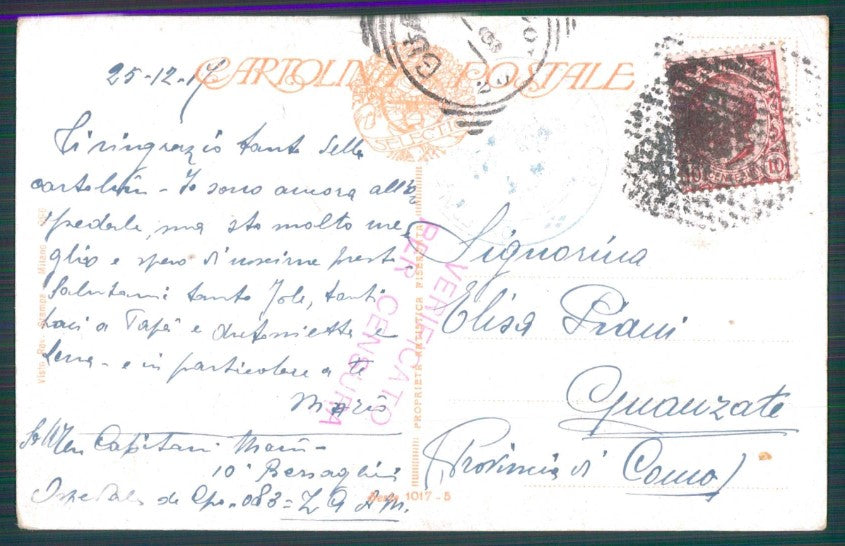 CARTOLINA POSTALE
SELECTA
25-12-17
Ti ringrazio tanto della
cartolina - Io sono ancora all'o
spedale, ma sto molto me
glio e spero di uscirne presto
Salutami tanto Jole, tanti
baci a Papà e Antonietta e
Lena - e in particolare a te
Mario
S. Ten Capitani Mario
10° Bersaglieri
Ospedale da Cpo. 083 = Z A M.
VERIFICATO
PER CENSURA
PROPRIETÀ ARTISTICA RISERVATA
Visto Rev. Stampa Milano
1017-5
10
Signorina
Elisa Prani
Guanzate
(Provincia di Como)